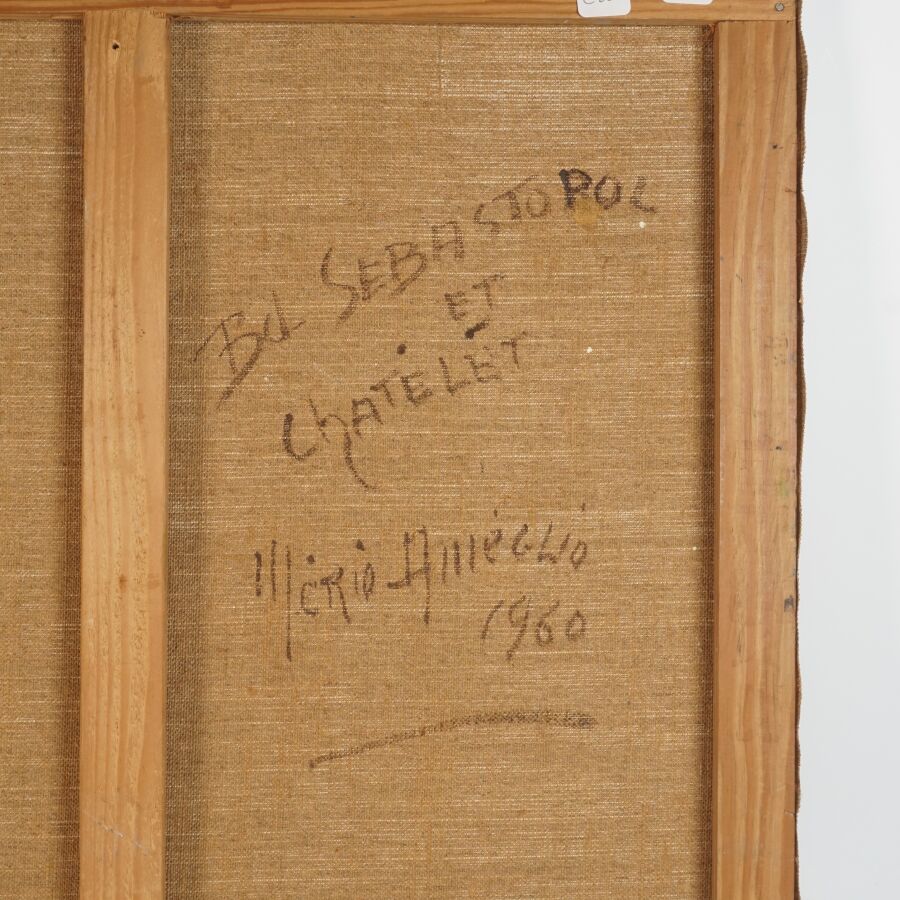 Bd SEBASTOPOL
ET
ChATELET
MéRio AMéGLio
1960